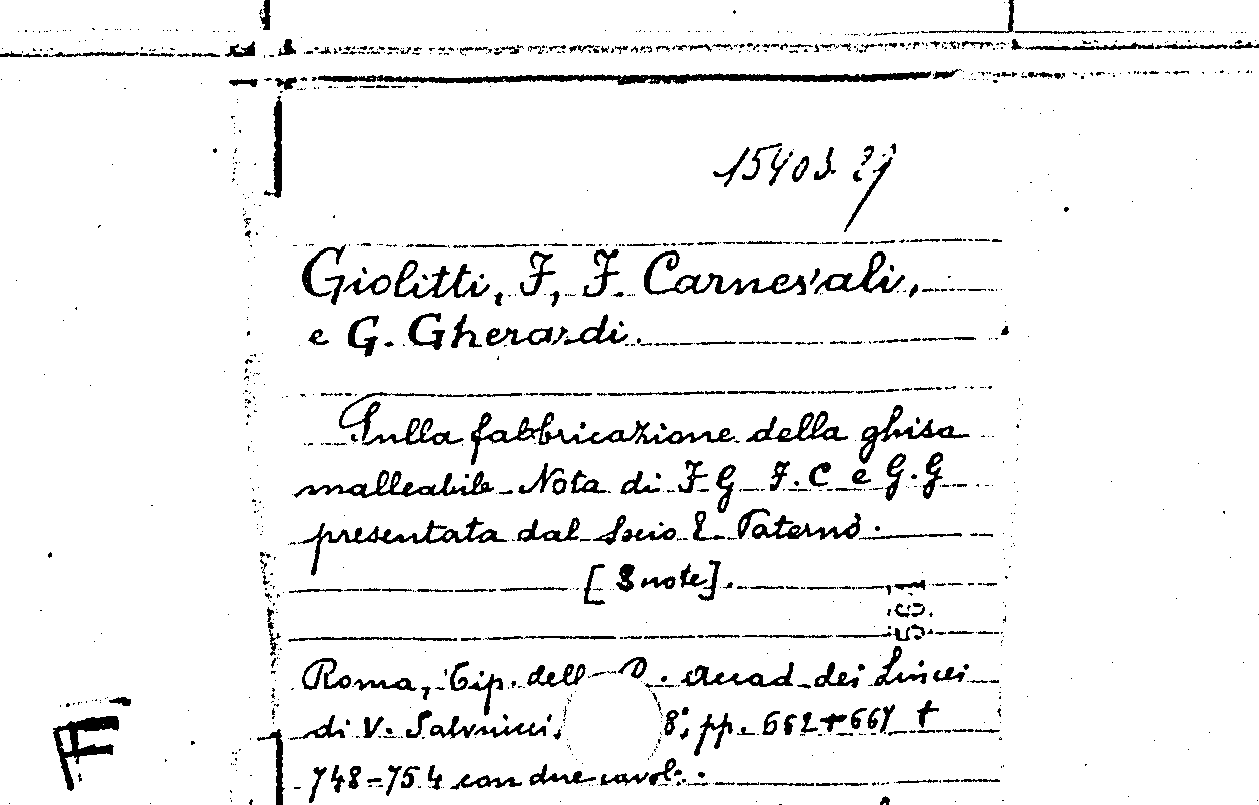 15403. 29
Giolitti, F, F. Carnevali,
e G. Gherardi.
Sulla fabbricazione della ghisa
malleabile Nota di F G F. C e G. G
presentata dal Socio E. Paternò.
[3 note].
561
Roma, Tip. dell R. Accad. dei Lincei
di V. Salviucci, 8°, pp. 662+667 +
748-754 con due tavole.
F